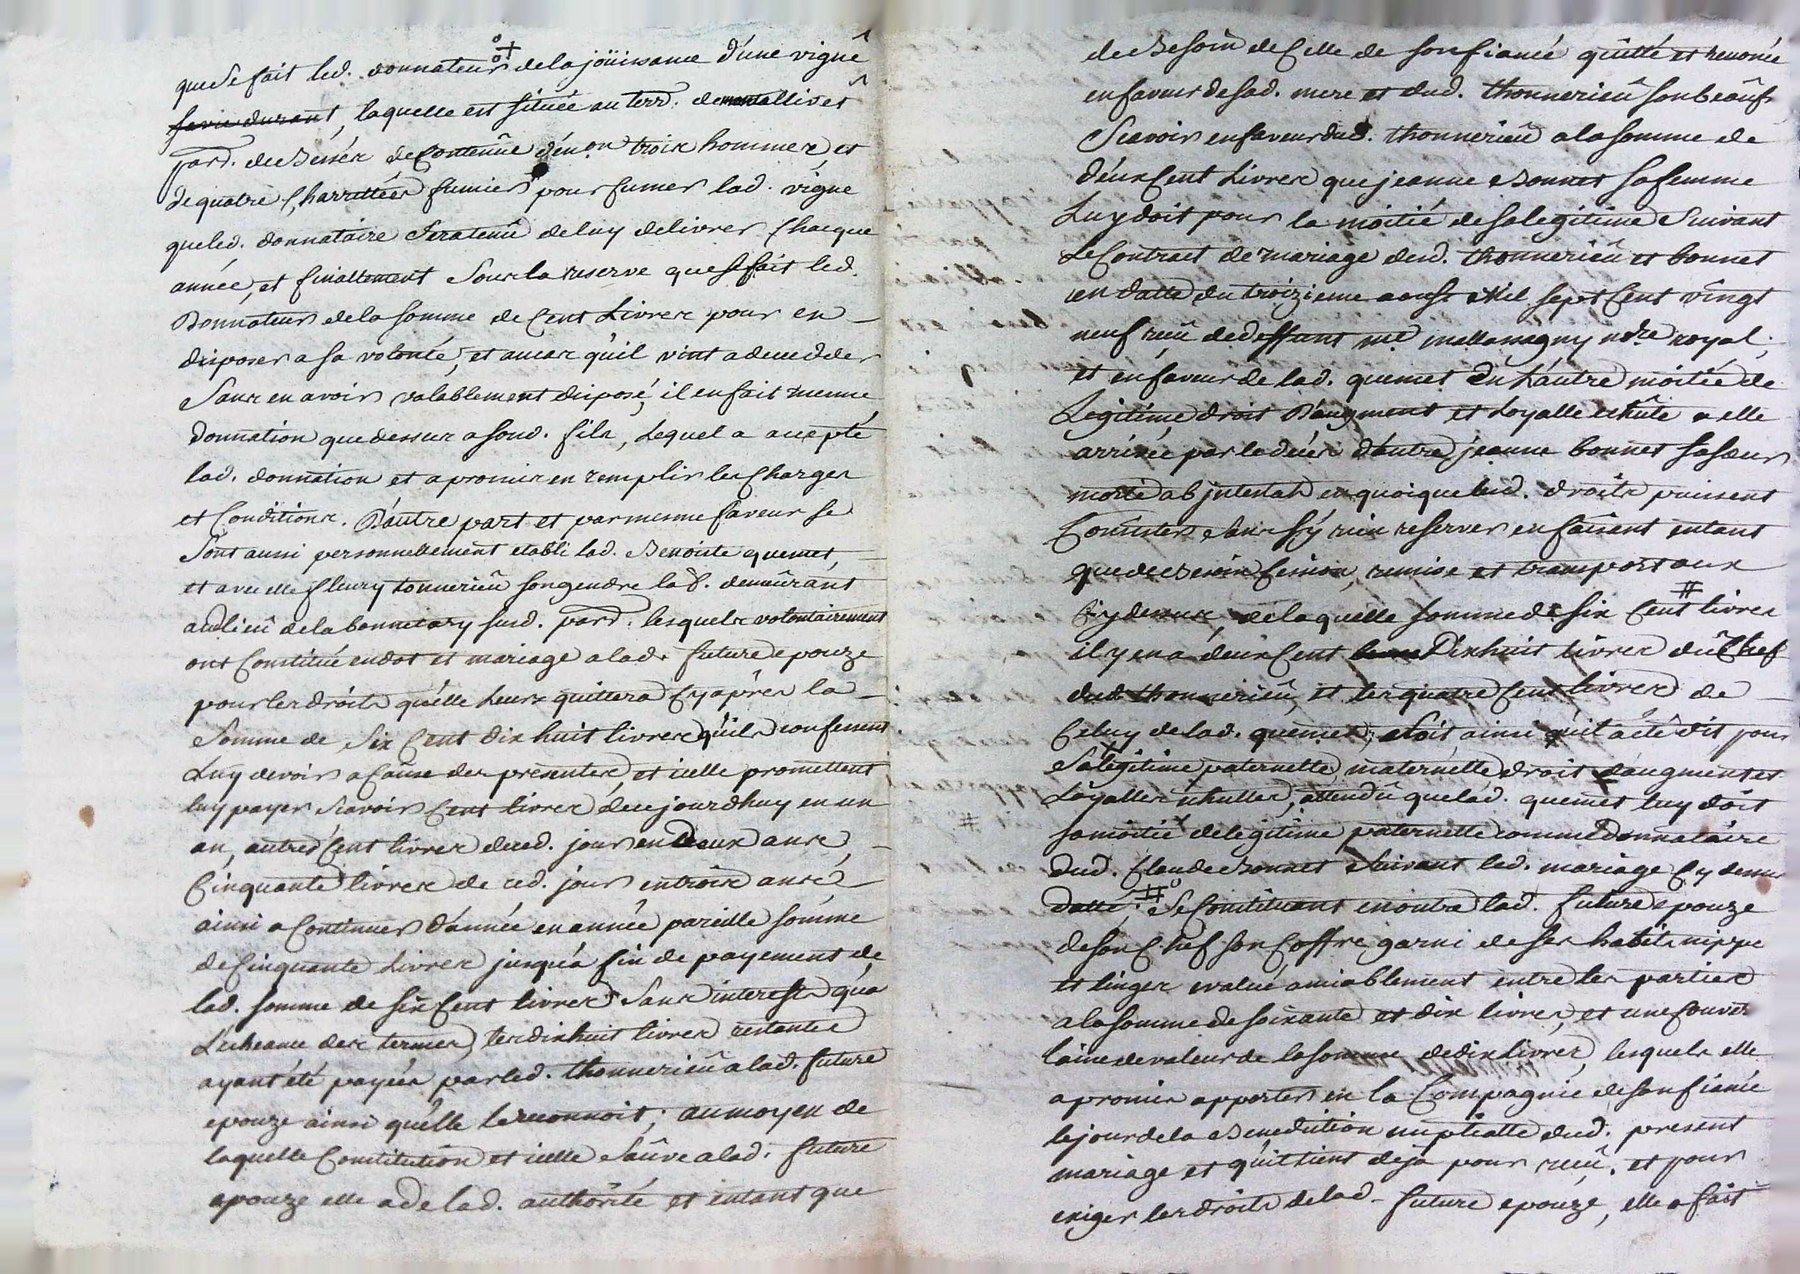 que se fait led. donnateur de la joüissance d'une vigne
sa vie durant, laquelle est située au terr. de
par. de Bessey de Contenüe d'environ trois hommes et
de quatre Charrettées fumier pour fumer lad. vigne
que led. donnataire sera tenû de luy delivrer chacque
année, et finallement sous la reserve que se fait led.
Donnateur de la somme de Cent Livres pour en
disposer a sa volonté, et au cas qu'il vint a deceder
sans en avoir valablement disposé, il en fait meme
donnation que dessus a sond. fils, lequel a accepté
lad. donnation et a promis en remplir les Charges
et Conditions. D'autre part et par meme faveur se
sont aussi personnellement etabli lad. Benoite quemet
et avec elle fleury tonnerieû son gendre lab. demeûrant
audlieû de la bonnetary susd. par. lesquels volontairement
ont Constitué en dot et mariage a lad. future epouze
pour les droits qu'elle leurs quittera Cy après la
somme de six Cent dix huit livres qu'ils confessent
Luy devoir a Cause des presentes, et icelle promettent
luy payer scavoir Cent livres de ce jourdhuy en un
an, autres Cent livres de ced. jour en Deux ans,
Cinquante livres de ced. jour en trois ans et
ainsi a Continuer d'année en année pareille somme
de Cinquante Livres jusqu'a fin de payement de
lad. somme de six Cent livres sans interests qu'a
L'echeance des termes, les dixhuit livres restantes
ayant été payées par led. thonnerieû a lad. future
epouze ainsi qu'elle le reconnoit; au moyen de
laquelle Constitution et icelle sauve a lad. future
epouze elle a de lad. authorité et entant que
de Besoin de Celle de son fiancé quitté et renoncé
en faveur de sad. mere et dud. thonnerieû son beaufr
Scavoir en faveur dud. thonnerieû a la somme de
deux Cent Livres que jeanne Bonnet sa femme
Luy doit pour la moitié de sa legitime suivant
Le Contract de mariage desd. thonnerieû et bonnet
en datte du troizieme aoust Mil sept Cent vingt
neuf reçû de deffunt me mallassagny nore royal;
et en faveur de lad. quemet du L'autre moitié de
Legitime droit D'augment et Loyalle echûte a elle
arrivée par le décès d'autre jeanne bonnet sa sœur
morte ab intestat en quoique lesd. droits puissent
Consister sans s'y rien reserver en faisent entant
que de besoin Cession, remise et transport aux
Cy dessus, de laquelle somme de six Cent livres
il y en a deux Cent Dixhuit livres du Chef
dud. thonnerieû, et les quatre Cent livres de
Celuy de lad. quemet, soit ainsi qu'il a été dit pour
Sa legitime paternelle, maternelle droit d'augment et
Loyalles echuttes, attendû que lad. quemet luy doit
sa moitié de legitime paternelle comme Donnataire
dud. Claude Bonnet suivant led. mariage Cy dessus
datté. Se Constituant en outre lad. future epouze
de son Chef son Coffre garni de ses habits nippe
et linges evalué amiablement entre les parties
a la somme de soixante et dix livres, et une Couverte
laine de valeur de la somme de dix livres, lesquels elle
a promis apporter en la Compagnie de son fiancé
le jour de la Benediction nuptialle dud. present
mariage et qu'il tient deja pour reçû. et pour
exiger les droits de lad. future epouze, elle a fait